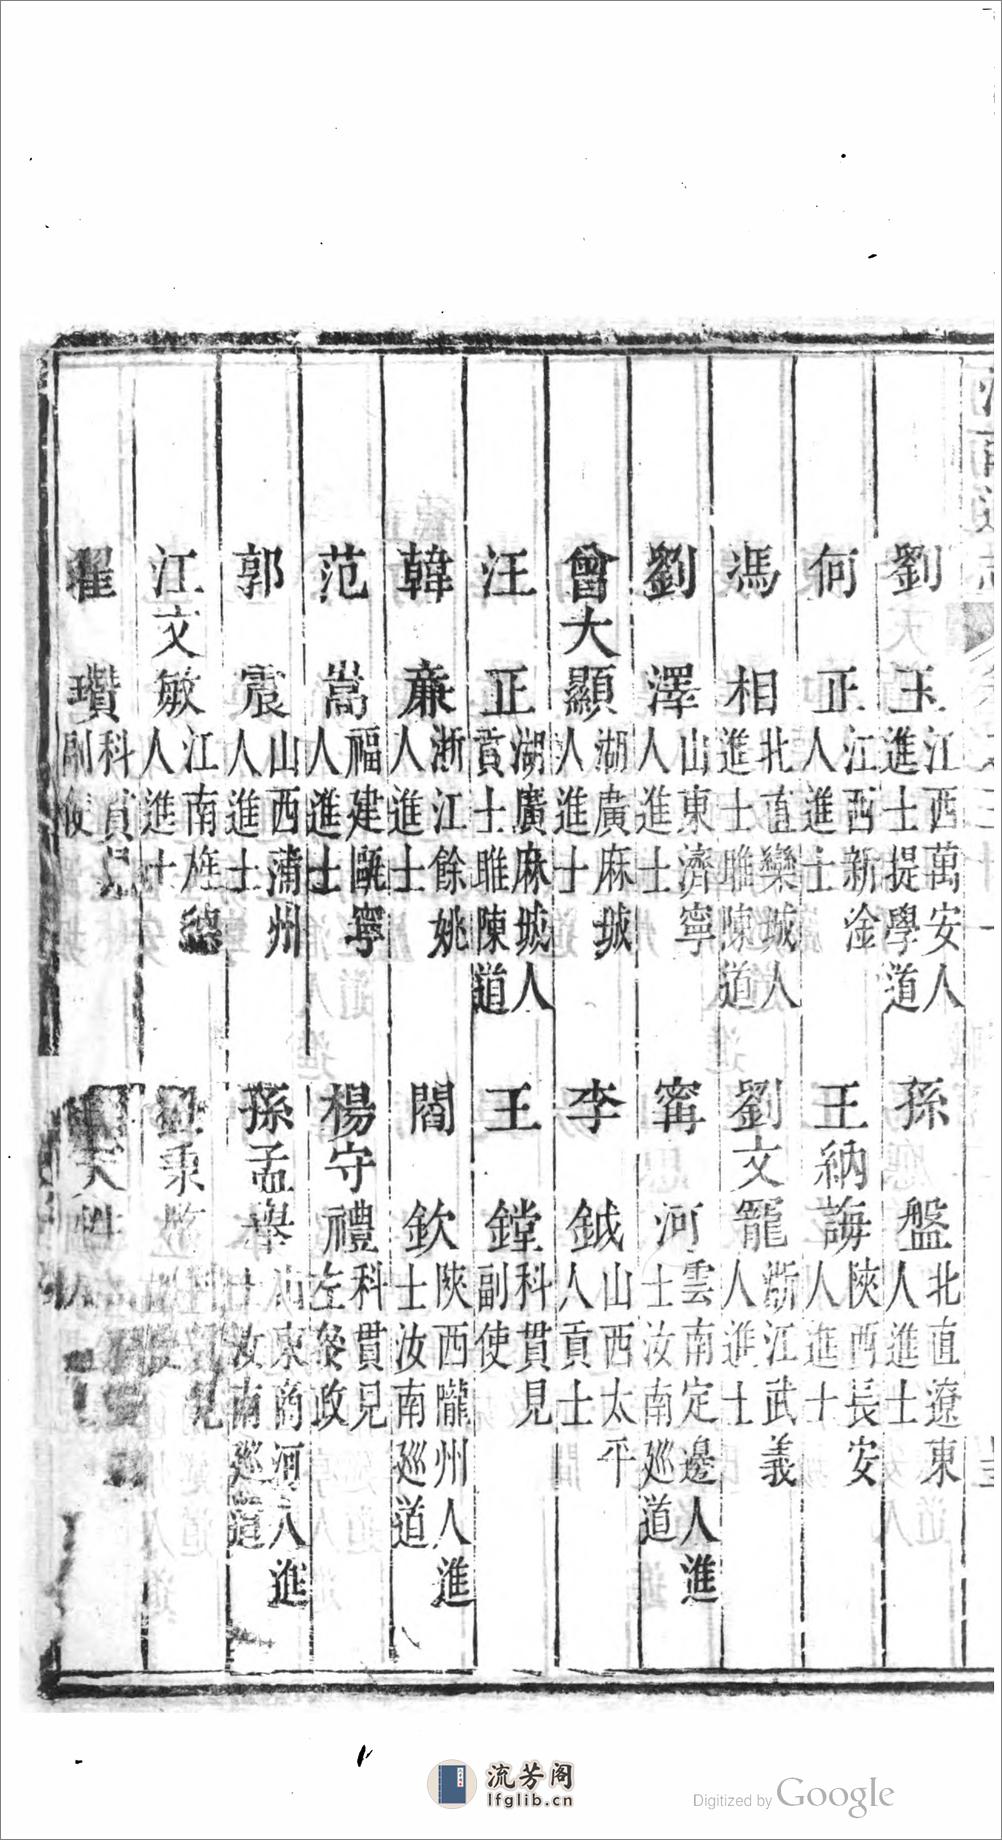 劉玉江西萬安人進士提學道　孫盤北直遼東人進士
何正江西新淦人進士　王納誨陝西長安人進士
馮相北直欒城人進士睢陳道　劉文寵浙江武義人進士
劉澤山東濟寧人進士　甯河雲南定邊人進士汝南廵道
曾大顯湖廣麻城人進士　李鉞山西太平人貢士
汪正湖廣麻城人貢士睢陳道　王鏜科貫見副使
韓廉浙江餘姚人進士　閻欽陝西隴州人進士汝南廵道
范嵩福建甌寧人進士　楊守禮科貫見左參政
郭震山西蒲州人進士　孫孟舉山東商河人進士汝南廵道
江文敏江南旌德人進士　秉
翟瓚科貫見副使
流芳阁
lfglib.cn
Digitized by Google